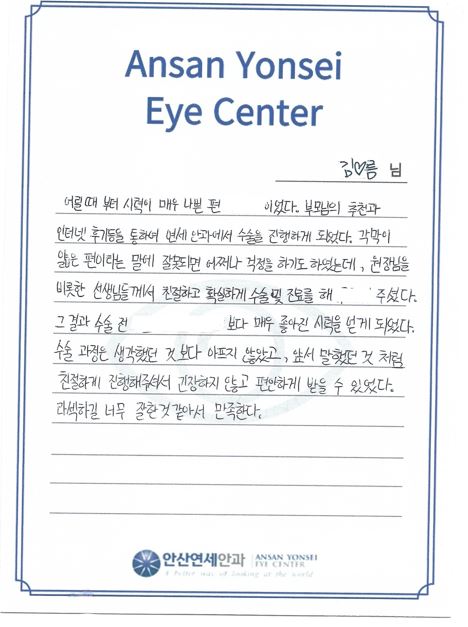 Ansan Yonsei
Eye Center
김♡름 님
어릴때 부터 시력이 매우 나쁠 편 이었다. 부모님의 추천과
인터넷 후기등을 통하여 연세 안과에서 수술을 진행하게 되었다. 각막이
얇은 편이라는 말에 잘못되면 어쩌나 걱정을 하기도 하였는데, 원장님을
비롯한 선생님들께서 친절하고 확실하게 수술 및 진료를 해 주셨다.
그 결과 수술 전 보다 매우 좋아진 시력을 얻게 되었다.
수술 과정은 생각했던 것 보다 아프지 않았고, 앞서 말했던 것 처럼
친절하게 진행해주셔서 긴장하지 않고 편안하게 받을 수 있었다.
라섹하길 너무 잘한것 같아서 만족한다.
안산연세안과 ANSAN YONSEI
EYE CENTER
A better way of looking at the world